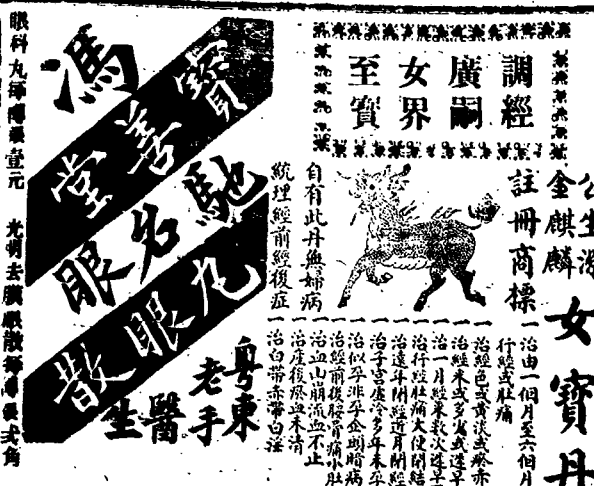 調經
廣嗣
女界
至寶
金麒麟
女寶丹
註冊商標
自有此丹無婦病
統理經前經後症
一治由一個月至六個月
行經或肚痛
一治經色或黃淡或瘀赤
一治經來或多或少或遲早
一治一月經來數次遲早
一治行經肚痛大便閉結
一治遠年閉經近月閉經
一治子宮虛冷多年未孕
一治似孕非孕
一治經前後腰骨痛小肚
一治血山崩流血不止
一治產後瘀血未清
一治白帶赤帶白淫
馮
寶善堂
馳名眼
丸眼散
粵東
老手
醫生
眼科丸每樽銀壹元
光明去膜眼散每樽銀弍角